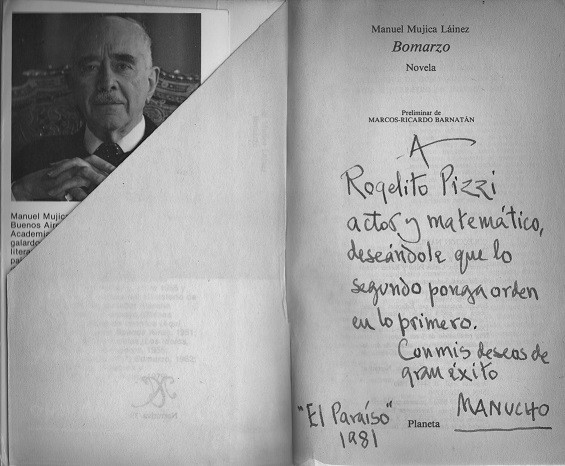 Manuel Mujic
Buenos Aire
Academi
galardo
litera
Manuel Mujica Láinez
Bomarzo
Novela
Preliminar de
MARCOS-RICARDO BARNATÁN
A
Rogelito Pizzi
actor y matemático,
deseándole que lo
segundo ponga orden
en lo primero.
Con mis deseos de
gran éxito
MANUCHO
"El Paraíso"
1981
Planeta